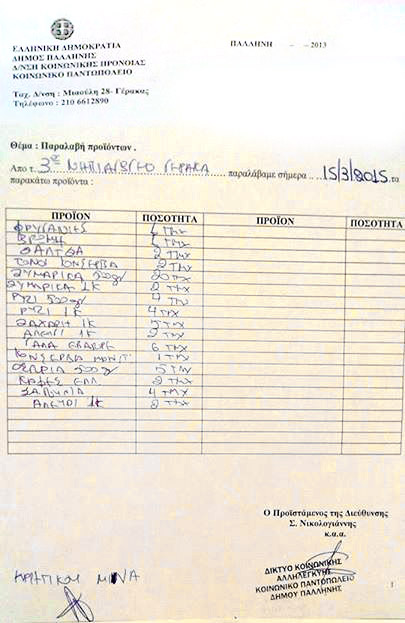 ΕΛΛΗΝΙΚΗ ΔΗΜΟΚΡΑΤΙΑ
ΔΗΜΟΣ ΠΑΛΛΗΝΗΣ
Δ/ΝΣΗ ΚΟΙΝΩΝΙΚΗΣ ΠΡΟΝΟΙΑΣ
ΚΟΙΝΩΝΙΚΟ ΠΑΝΤΟΠΩΛΕΙΟ
ΠΑΛΛΗΝΗ – – 2013
Ταχ. Δ/νση : Μιαούλη 28- Γέρακας
Τηλέφωνο : 210 6612890
Θέμα : Παραλαβή προϊόντων .
Απο τ. 3ο ΝΗΠΙΑΓΩΓΕΙΟ ΓΕΡΑΚΑ παραλάβαμε σήμερα .. 15/3/2015 τα
παρακάτω προϊόντα :
ΠΡΟΪΟΝ ΠΟΣΟΤΗΤΑ ΠΡΟΪΟΝ ΠΟΣΟΤΗΤΑ
ΦΡΥΓΑΝΙΕΣ ΤΜΧ
ΒΡΩΜΗ ΤΜΧ
ΣΑΛΤΣΑ 2 ΤΜΧ
ΤΟΝΟΙ ΚΟΝΣΕΡΒΑ 2 ΤΜΧ
ΖΥΜΑΡΙΚΑ 500gr 20 ΤΜΧ
ΖΥΜΑΡΙΚΑ 1Κ 2 ΤΜΧ
ΡΥΖΙ 500gr 4 ΤΜΧ
ΡΥΖΙ 1Κ 4 ΤΜΧ
ΖΑΧΑΡΗ 1Κ 5 ΤΜΧ
ΑΛΕΥΡΙ 1Κ 2 ΤΜΧ
ΓΑΛΑ ΕΒΑΠΟΡΕ 6 ΤΜΧ
ΚΟΝΣΕΡΒΑ 1 ΤΜΧ
ΟΣΠΡΙΑ 500gr 5 ΤΜΧ
ΚΑΦΕΣ ΕΛΛ 2 ΤΜΧ
ΣΑΠΟΥΝΙΑ 4 ΤΜΧ
ΑΛΕΥΡΙ 1Κ 2 ΤΜΧ
Ο Προϊστάμενος της Διεύθυνσης
Σ. Νικολογιάννης
κ.α.α.
ΔΙΚΤΥΟ ΚΟΙΝΩΝΙΚΗΣ
ΑΛΛΗΛΕΓΓΥΗΣ
ΚΟΙΝΩΝΙΚΟ ΠΑΝΤΟΠΩΛΕΙΟ
ΔΗΜΟΥ ΠΑΛΛΗΝΗΣ